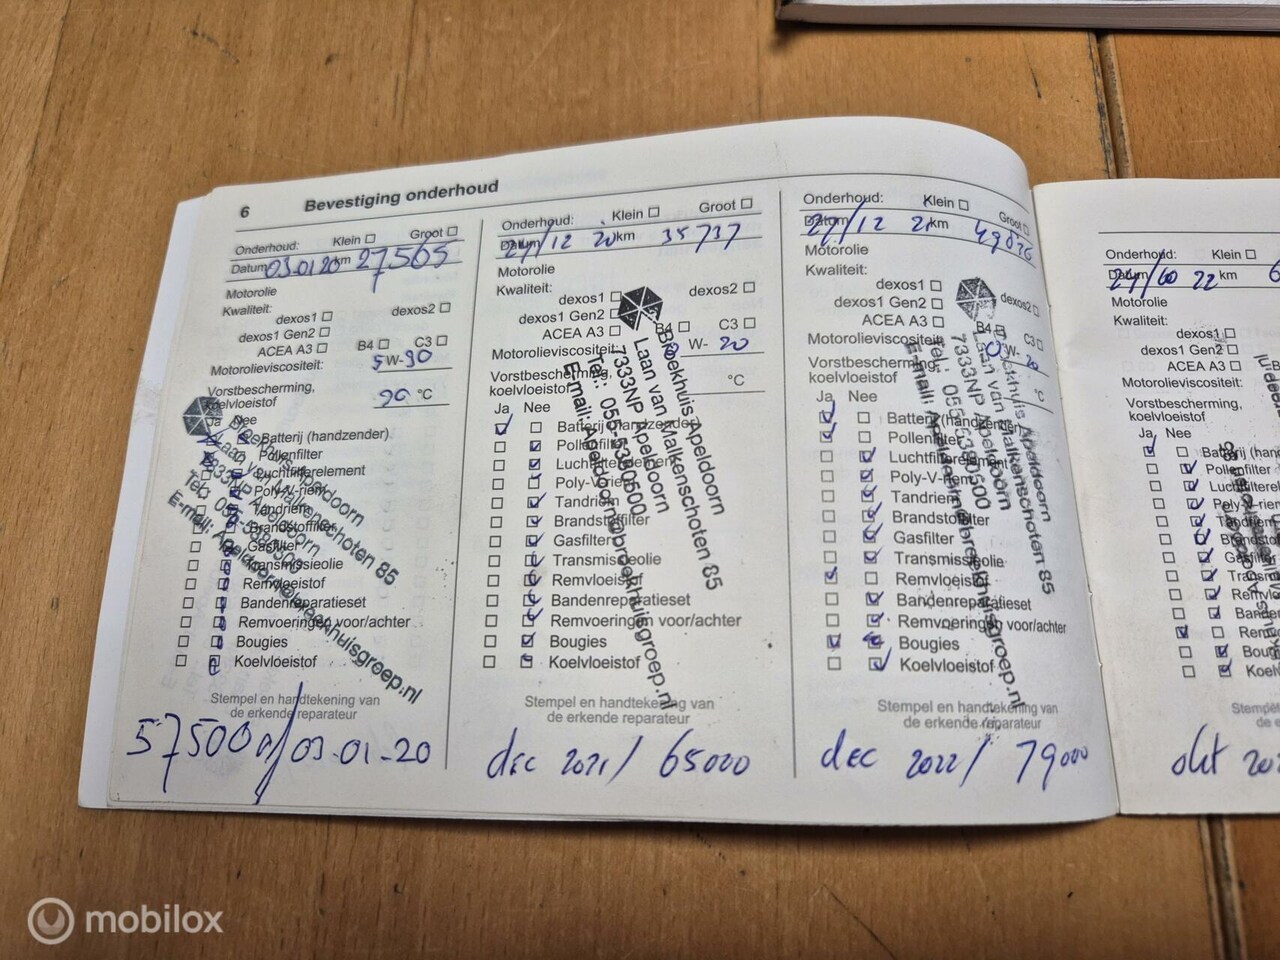 6 Bevestiging onderhoud
Onderhoud: Klein Groot
Datum 03-01 20 km 27565
Motorolie
Kwaliteit:
dexos1 dexos2
dexos1 Gen2
ACEA A3 B4 C3
Motorolieviscositeit: 5 W-30
Vorstbescherming,
koelvloeistof °C
Ja Nee
Batterij (handzender)
Pollenfilter
Luchtfilterelement
Poly-V-riem
Tandriem
Brandstoffilter
Gasfilter
Transmissieolie
Remvloeistof
Bandenreparatieset
Remvoeringen voor/achter
Bougies
Koelvloeistof
Broekhuis Apeldoorn
Laan van Malkenschoten 85
7333NP Apeldoorn
Tel.: 055-5390500
E-mail: Apeldoorn@broekhuisgroep.nl
Stempel en handtekening van
de erkende reparateur
57500 / 03-01-20
Onderhoud: Klein Groot
Datum 24/12 20 km 35737
Motorolie
Kwaliteit:
dexos1 dexos2
dexos1 Gen2
ACEA A3 B4 C3
Motorolieviscositeit: 0 W- 20
Vorstbescherming,
koelvloeistof °C
Ja Nee
Batterij (handzender)
Pollenfilter
Luchtfilterelement
Poly-V-riem
Tandriem
Brandstoffilter
Gasfilter
Transmissieolie
Remvloeistof
Bandenreparatieset
Remvoeringen voor/achter
Bougies
Koelvloeistof
Broekhuis Apeldoorn
Laan van Malkenschoten 85
7333NP Apeldoorn
Tel.: 055-5390500
E-mail: Apeldoorn@broekhuisgroep.nl
Stempel en handtekening van
de erkende reparateur
dec 2021 / 65000
Onderhoud: Klein Groot
Datum 27/12 21 km
Motorolie
Kwaliteit:
dexos1 dexos2
dexos1 Gen2
ACEA A3 B4 C3
Motorolieviscositeit: 0 W- 20
Vorstbescherming,
koelvloeistof °C
Ja Nee
Batterij (handzender)
Pollenfilter
Luchtfilterelement
Poly-V-riem
Tandriem
Brandstoffilter
Gasfilter
Transmissieolie
Remvloeistof
Bandenreparatieset
Remvoeringen voor/achter
Bougies
Koelvloeistof
Broekhuis Apeldoorn
Laan van Malkenschoten 85
7333NP Apeldoorn
Tel.: 055-5390500
E-mail: Apeldoorn@broekhuisgroep.nl
Stempel en handtekening van
de erkende reparateur
dec 2022 / 79000
Onderhoud: Klein
Datum 22 km
Motorolie
Kwaliteit:
dexos1
dexos1 Gen2
ACEA A3
Motorolieviscositeit:
Vorstbescherming,
koelvloeistof
Ja Nee
Pollenfilter
Poly-V-riem
Tandriem
okt
mobilox